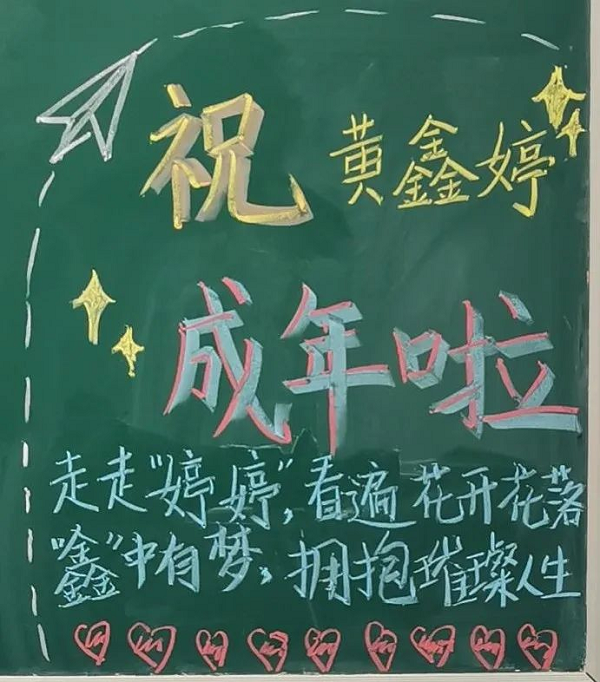 祝 黄鑫婷
成年啦
走走“婷婷”,看遍花开花落
“鑫”中有梦,拥抱璀璨人生